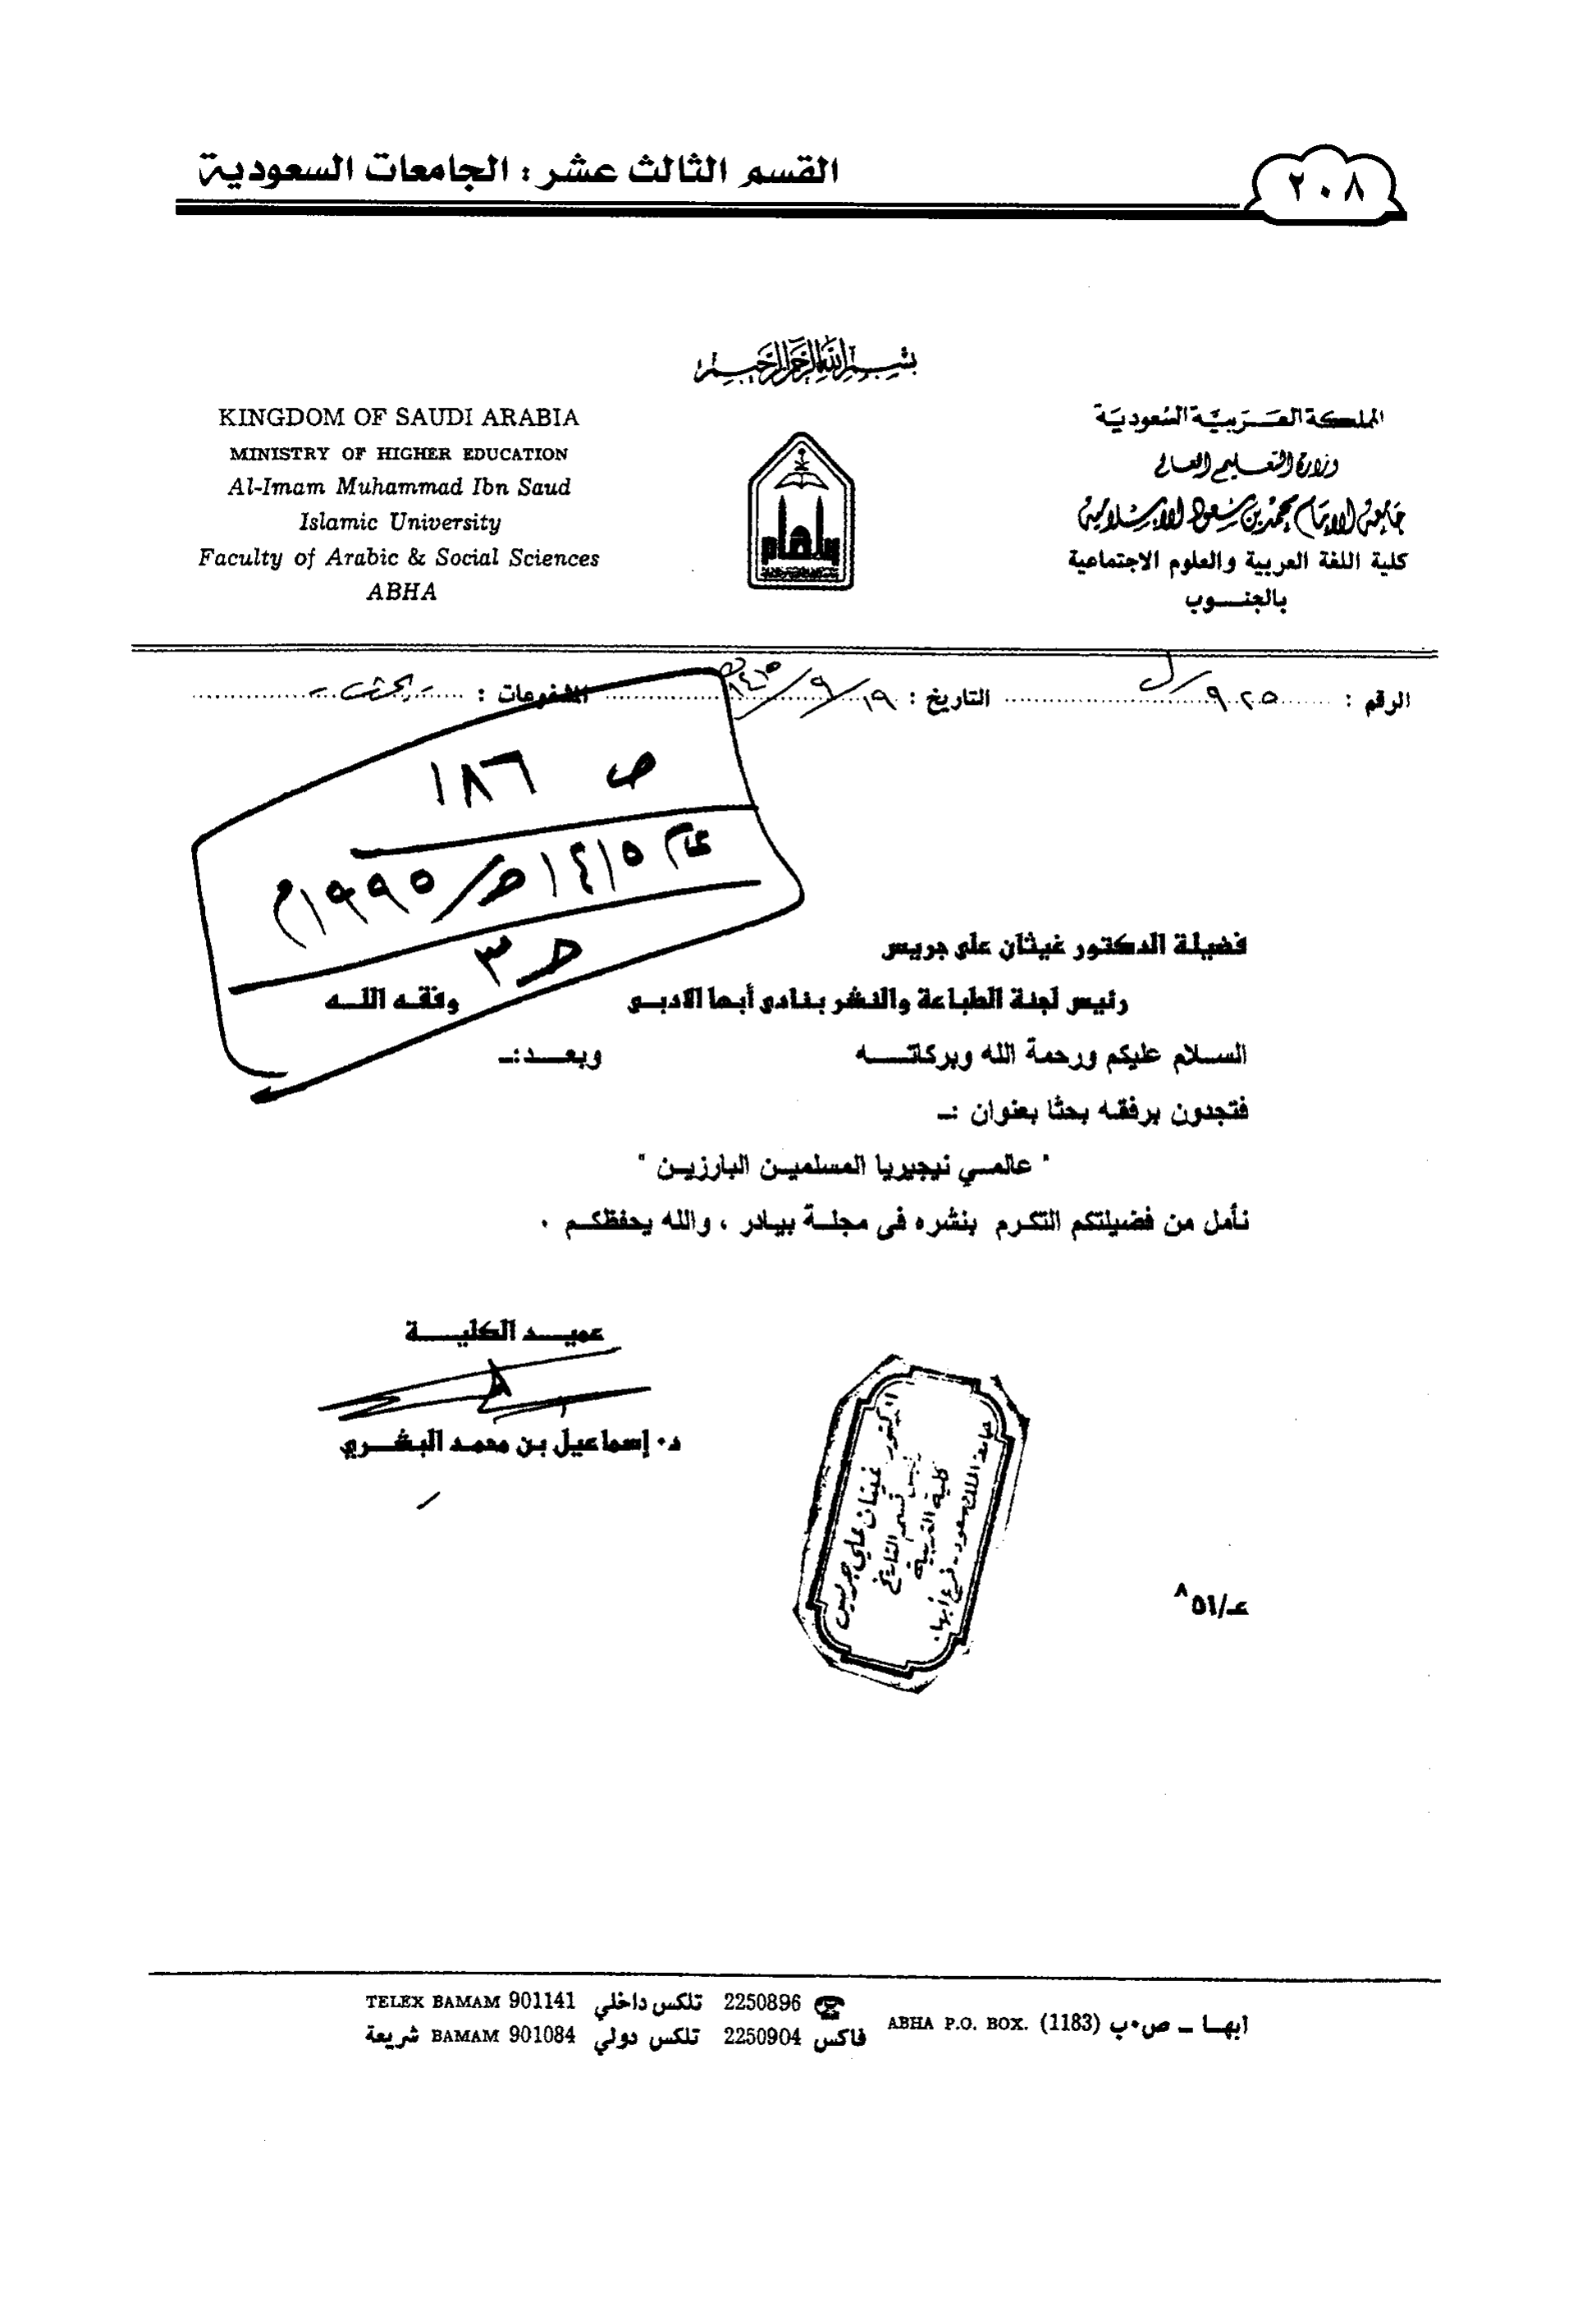 القسم الثالث عشر : الجامعات السعودية
٢٠٨
بسم الله الرحمن الرحيم
KINGDOM OF SAUDI ARABIA
MINISTRY OF HIGHER EDUCATION
Al-Imam Muhammad Ibn Saud
Islamic University
Faculty of Arabic & Social Sciences
ABHA
المملكة العربية السعودية
وزارة التعليم العالي
جامعة الإمام محمد بن سعود الإسلامية
كلية اللغة العربية والعلوم الاجتماعية
بالجنوب
الرقم : ٩٢٥/ل التاريخ : ١٩/٩/١٤١٥ه المشفوعات : - بحث -
ص ١٨٦
عام ١٤١٥ه/١٩٩٥م
ح ٣
فضيلة الدكتور غيثان على جريس
رئيس لجنة الطباعة والنشر بنادى أبها الادبى وفقه الله
السلام عليكم ورحمة الله وبركاته وبعد :-
فتجدون برفقه بحثا بعنوان :-
" عالمي نيجيريا المسلمين البارزين "
نأمل من فضيلتكم التكرم بنشره فى مجلة بيادر ، والله يحفظكم .
عميد الكلية
د. إسماعيل بن محمد البشري
الدكتور
غيثان علي جريس
رئيس قسم التاريخ
كلية التربية
جامعة الملك سعود - فرع أبها
عـ/٥١ ٨
ابها - ص.ب (1183) ABHA P.O. BOX.
☎ 2250896 تلكس داخلي TELEX BAMAM 901141
فاكس 2250904 تلكس دولي BAMAM 901084 شريعة